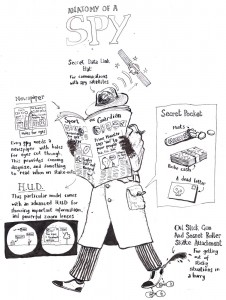 ANATOMY OF A
SPY
Secret Data Link
Hat:
For communications
with spy satellites
Newspaper
Every spy needs a
newspaper with holes
for eyes cut through.
This provides cunning
disguise, and something
to read when on stake-outs
Sport
The Guardian
Secret Pocket
Nuts
Extra cash
A dead kitten
H.U.D.
This particular model comes
with an advanced H.U.D for
showing important information,
and powerful zoom lenses
Oil Slick Gun
And Secret Roller
Skate Attachment
For getting
out of
sticky
situations in
a hurry